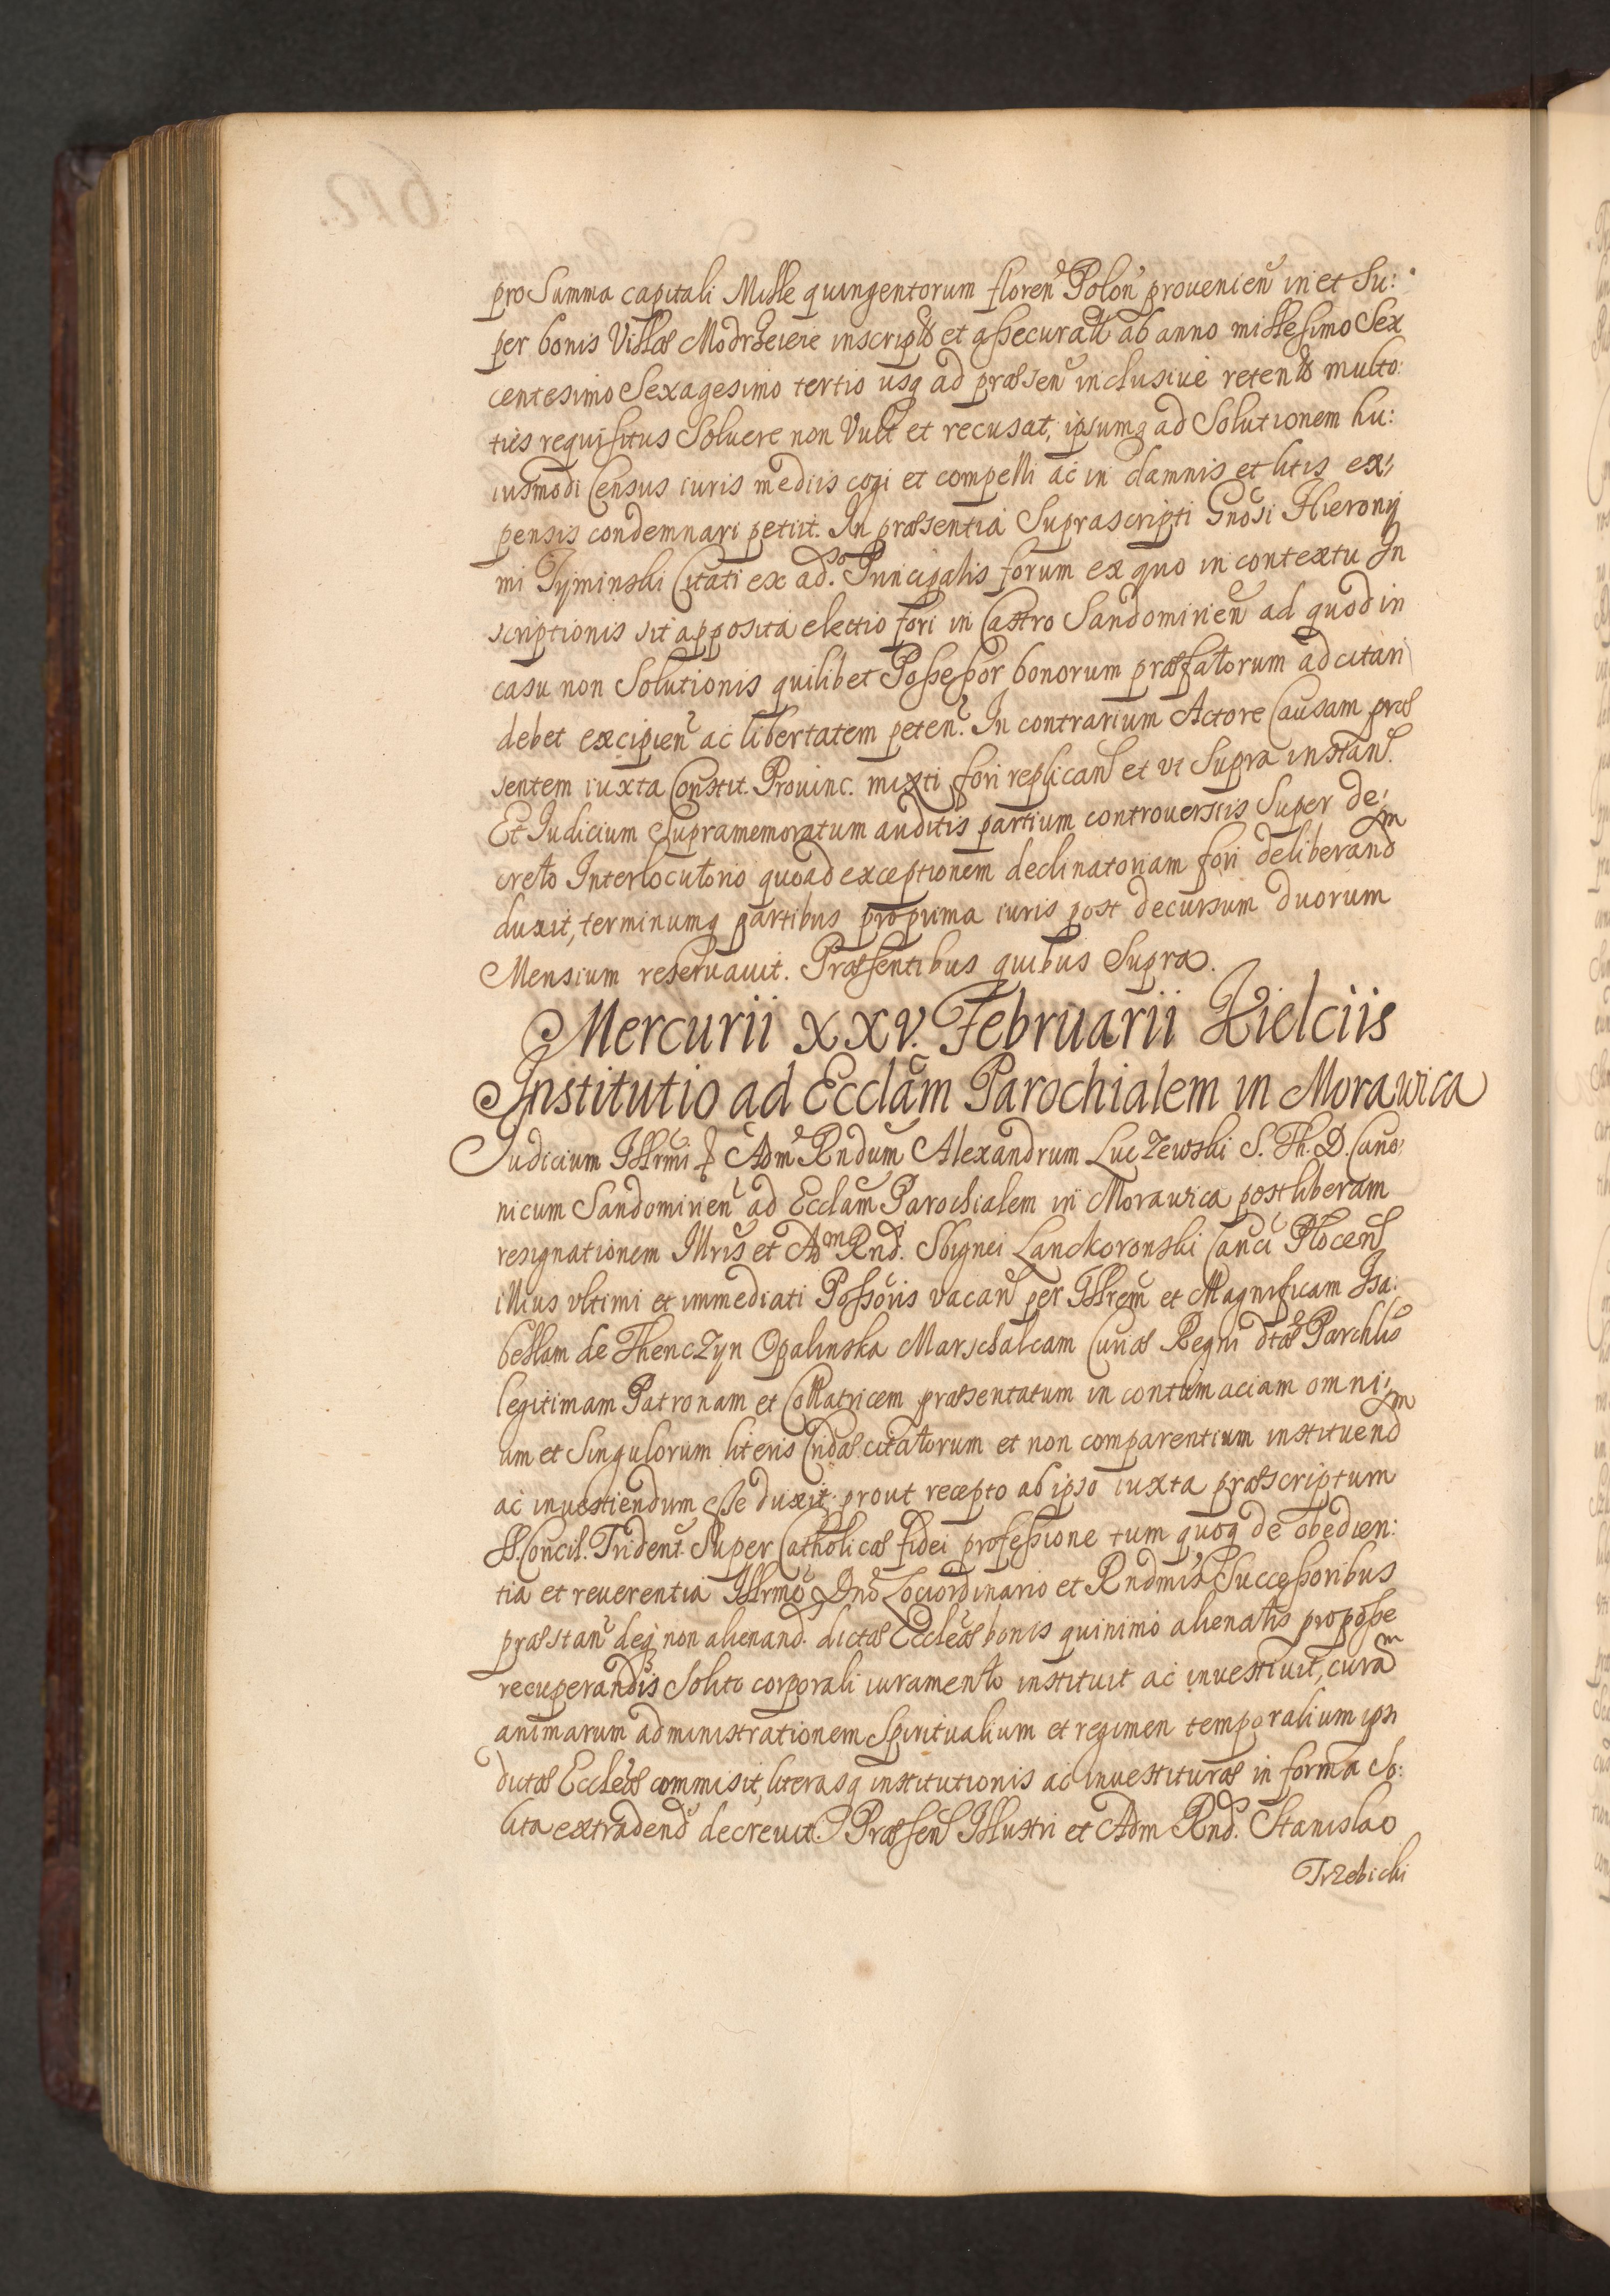 pro Summa capitali Mille quingentorum floren Polon prouenien in et Su:
per bonis Villæ Modrzeiere inscriptis et assecuratt ab anno millesimo Sex
centesimo Sexagesimo tertio usq ad præsen inclusiue retentis multo:
ties requisitus Soluere non Vult et recusat, ipsumq ad Solutionem hu:
iusmodi Census iuris mediis cogi et compelli ac in damnis et litis ex:
pensis condemnari petiit. In præsentia Suprascripti Gnosi Hierony
mi Tyminski Citati ex ad.so Principalis forum ex quo in contextu In
scriptionis sit apposita electio fori in Castro Sandomirien ad quod in
casu non Solutionis quilibet Possessor bonorum præfatorum ad citari
debet excipien ac libertatem peten. In contrarium Actore Causam præ
sentem iuxta Constit. Prouinc. mixti fori replican et vt Supra instan.
Et Iudicium Supramemoratum auditis partium controuersiis Super de:
creto Interlocutorio quoad exceptionem declinatoriam fori deliberandm
duxit, terminumq partibus pro prima iuris post decursum duorum
Mensium reseruauit. Præsentibus quibus Supra.
Mercurii xxv. Februarii Kielciis
Institutio ad Ecclam Parochialem in Morawica
Iudicium Illrmi & Adm Rndum Alexandrum Luczewski S. Th. D. Cano:
nicum Sandomirien ad Ecclam Parochialem in Morawica post liberam
resignationem Illris et Adm Rnd. Sbignei Lanckoronski Canci Plocen
illius vltimi et immediati Possoris vacan per Illrem et Magnificam Isa:
bellam de Thenczyn Opalinska Marschalcam Curiæ Regni dtæ Parchlis
legitimam Patronam et Collatricem præsentatum in contumaciam omni:
um et Singulorum literis Cridæ citatorum et non comparentium instituendm
ac inuestiendum esse duxit prout recepto ab ipso iuxta præscriptum
S. Concil. Trident. Super Catholicæ fidei professione tum quoq de obedien:
tia et reuerentia Illrmo Dno Lociordinario et Rndmis Successoribus
præstan deq non alienand. dictæ Eccleæ bonis quinimo alienatis pro posse
recuperandis Solito corporali iuramento instituit ac inuestiuit, curam
animarum administrationem Spiritualium et regimen temporalium ipsi
dictæ Eccleæ commisit, literasq institutionis ac inuestituræ in forma So:
lita extradend decreuit. Præsen Illustri et Adm Rnd. Stanislao
Trzebicki